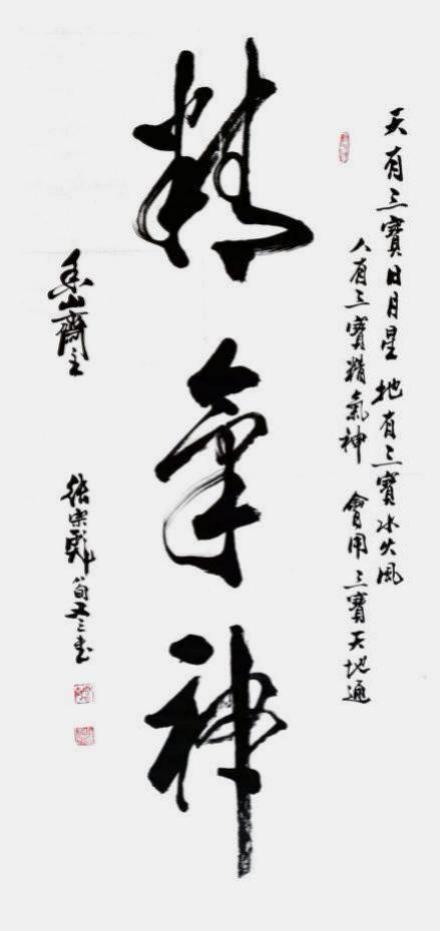 天有三寶日月星 地有三寶水火風
人有三寶精氣神 會用三寶天地通
精氣神
香山齋主
張宗彪 書